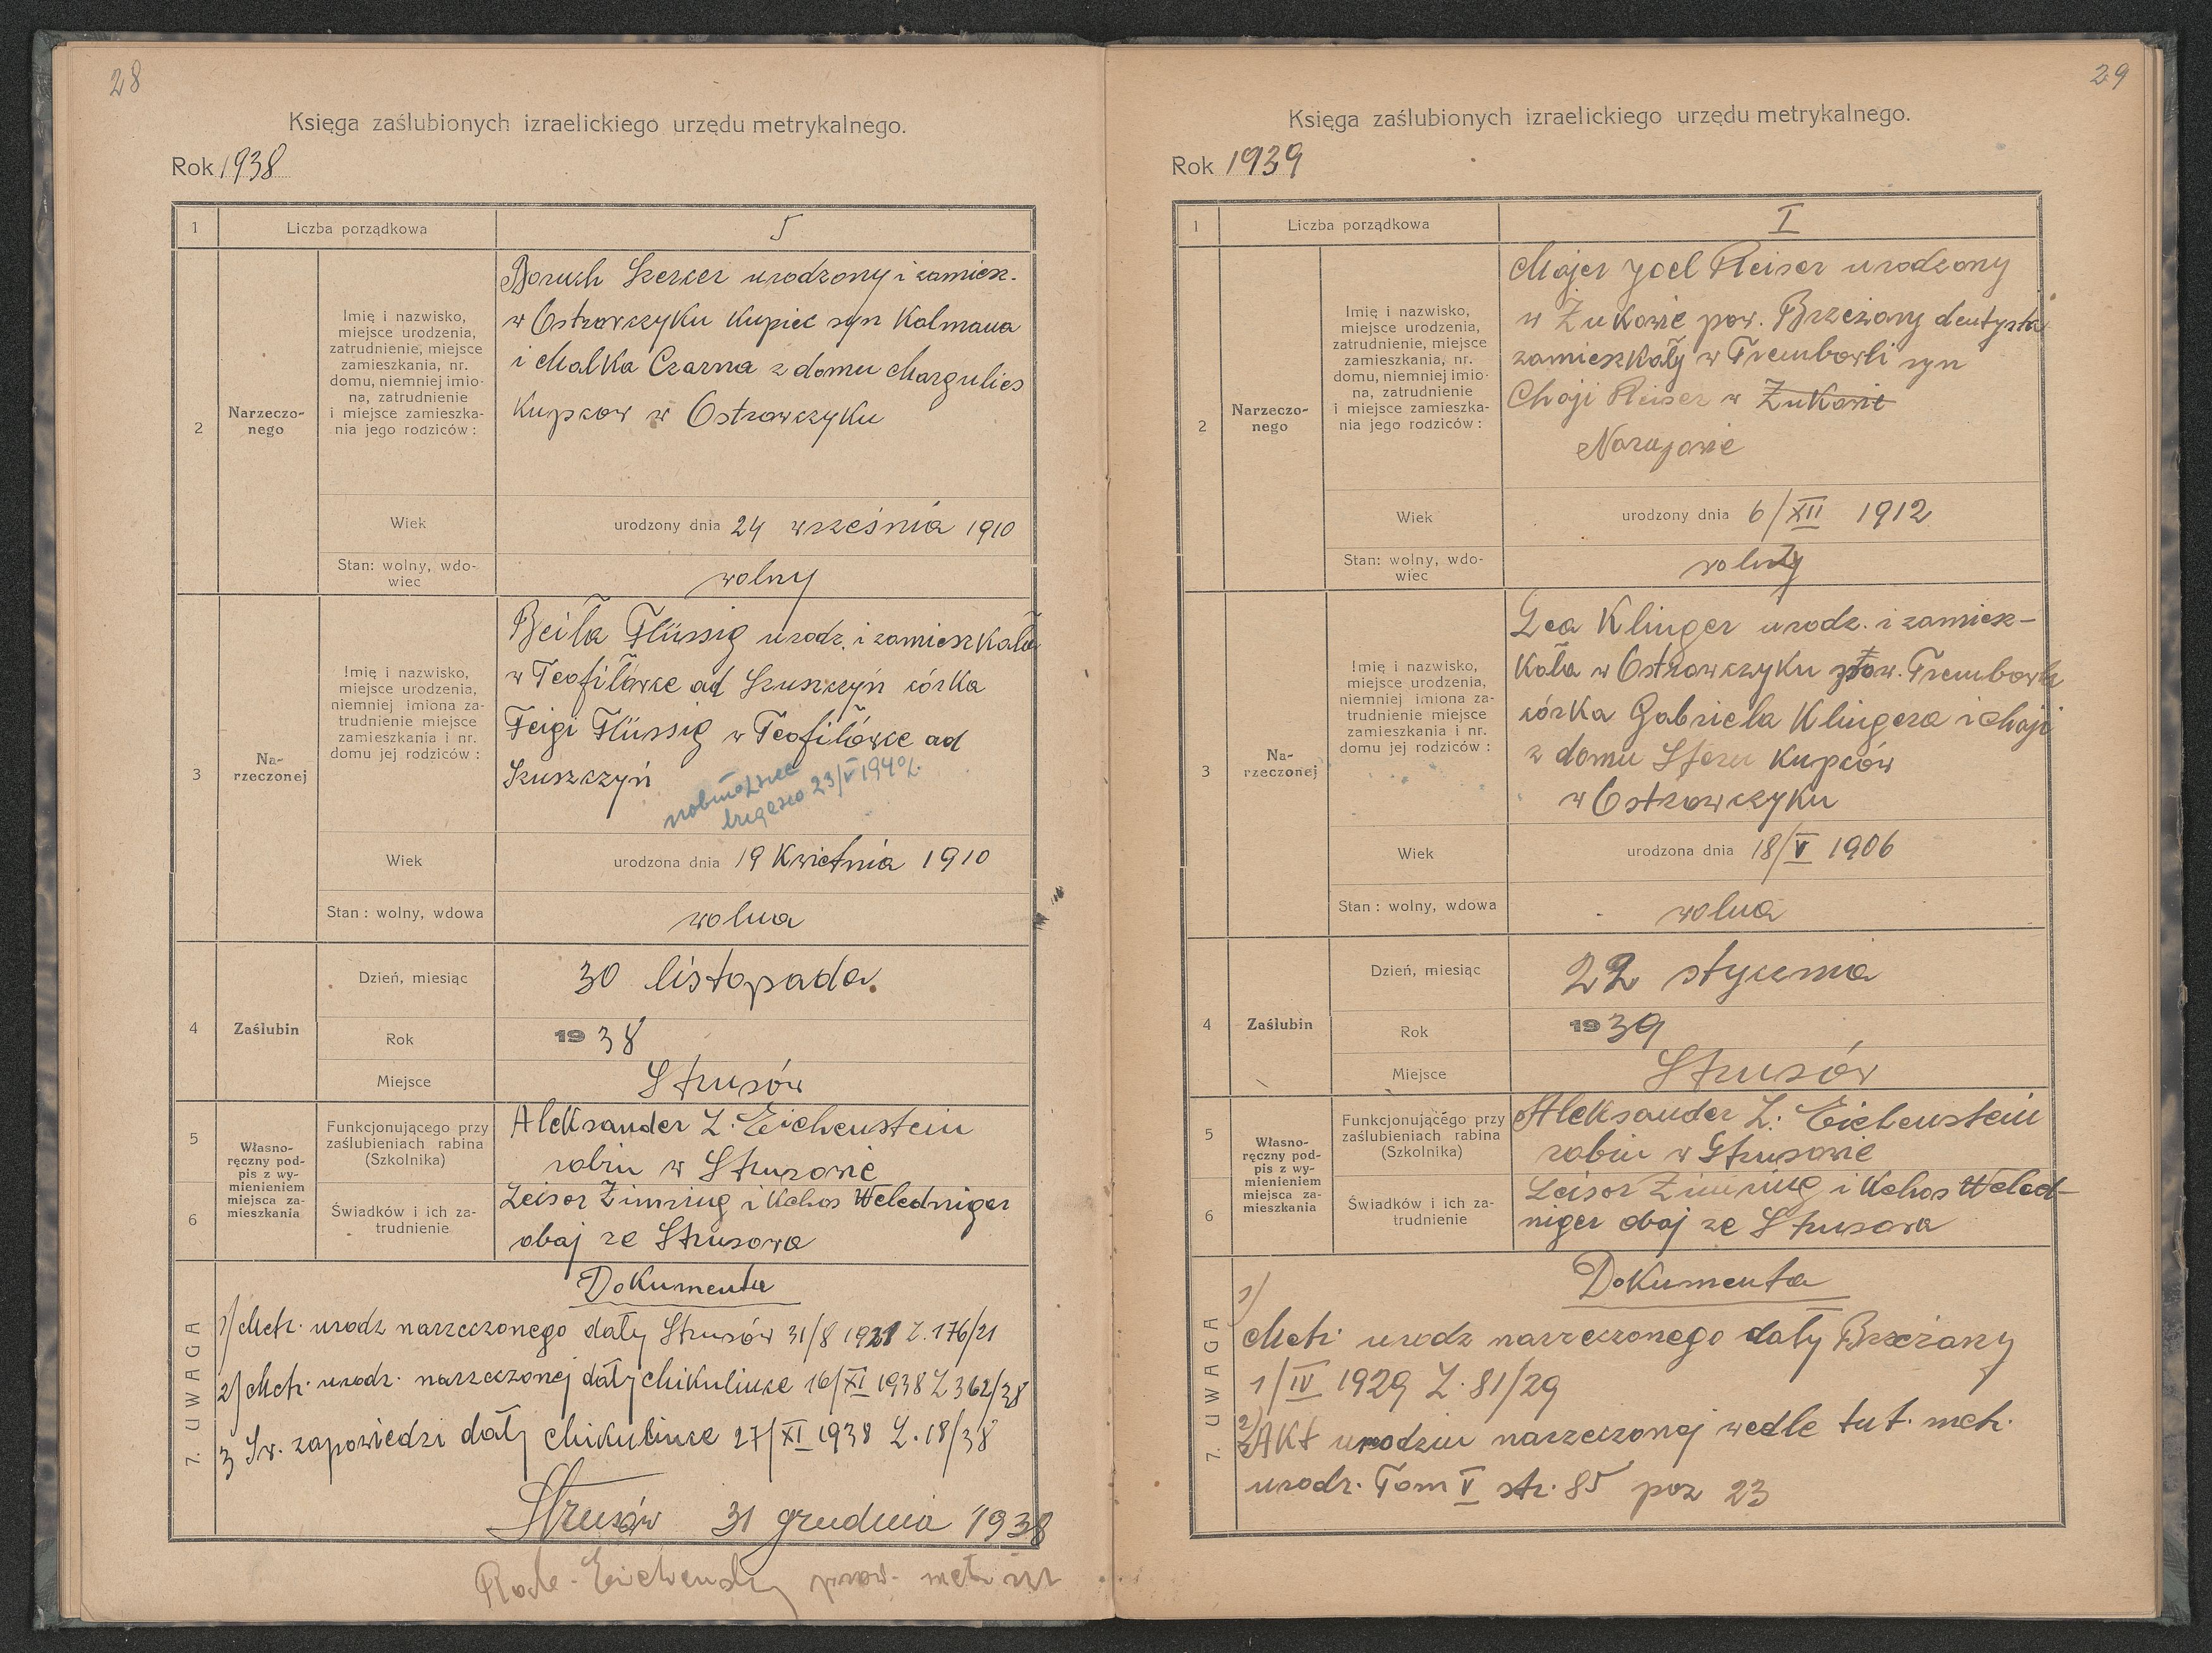 28
Księga zaślubionych izraelickiego urzędu metrykalnego.
Rok 1938
1
Liczba porządkowa
5
2
Narzeczo-
nego
Imię i nazwisko,
miejsce urodzenia,
zatrudnienie, miejsce
zamieszkania, nr.
domu, niemniej imio-
na, zatrudnienie
i miejsce zamieszka-
nia jego rodziców :
Boruch Szerzer urodzony i zamiesz.
w Ostrowczyku Kupiec syn Kalmana
i Malka Czarna z domu Margulies
Kupców w Ostrowczyku
Wiek
urodzony dnia 24 września 1910
Stan: wolny, wdo-
wiec
wolny
3
Na-
rzeczonej
Imię i nazwisko,
miejsce urodzenia,
niemniej imiona za-
trudnienie miejsce
zamieszkania i nr.
domu jej rodziców :
Beiła Flüssig urodz. i zamieszkała
w Teofilówce ad Szuszczyń córka
Feigi Flüssig w Teofilówce ad
Szuszczyń
23/V 1940
Wiek
urodzona dnia 19 Kwietnia 1910
Stan : wolny, wdowa
wolna
4
Zaślubin
Dzień, miesiąc
30 listopada.
Rok
1938
Miejsce
Strusów
5
6
Własno-
ręczny pod-
pis z wy-
mienieniem
miejsca za-
mieszkania
Funkcjonującego przy
zaślubieniach rabina
(Szkolnika)
Aleksander Z. Eichenstein
rabin w Strusowie
Świadków i ich za-
trudnienie
Leisor Zimring i Kehos Weledniger
obaj ze Strusowa
7. UWAGA
Dokumenta
1/ Metr. urodz narzeczonego dały Strusów 31/8 1921 L. 176/21
2/ Metr. urodz. narzeczonej dały Mikulińce 16/XI 1938 L 362/38
3 Św. zapowiedzi dały Mikulińce 27/XI 1938 L. 18/38
Strusów 31 grudnia 1938
29
Księga zaślubionych izraelickiego urzędu metrykalnego.
Rok 1939
1
Liczba porządkowa
I
2
Narzeczo-
nego
Imię i nazwisko,
miejsce urodzenia,
zatrudnienie, miejsce
zamieszkania, nr.
domu, niemniej imio-
na, zatrudnienie
i miejsce zamieszka-
nia jego rodziców :
Majer Joel Reiser urodzony
w Żukowie pow. Brzeżany dentysta
zamieszkały w Trembowli syn
Chaji Reiser w Żukowie
Narajowie
Wiek
urodzony dnia 6/XII 1912
Stan: wolny, wdo-
wiec
wolny
3
Na-
rzeczonej
Imię i nazwisko,
miejsce urodzenia,
niemniej imiona za-
trudnienie miejsce
zamieszkania i nr.
domu jej rodziców :
Lea Klinger urodz. i zamiesz-
kała w Ostrowczyku pow. Trembowla
córka Gabriela Klingera i Chaji
z domu Stern Kupców
w Ostrowczyku
Wiek
urodzona dnia 18/V 1906
Stan : wolny, wdowa
wolna
4
Zaślubin
Dzień, miesiąc
22 stycznia
Rok
1939
Miejsce
Strusów
5
6
Własno-
ręczny pod-
pis z wy-
mienieniem
miejsca za-
mieszkania
Funkcjonującego przy
zaślubieniach rabina
(Szkolnika)
Aleksander Z. Eichenstein
rabin w Strusowie
Świadków i ich za-
trudnienie
Leisor Zimring i Kehos Weled-
niger obaj ze Strusowa
7. UWAGA
Dokumenta
1/
Metr. urodz narzeczonego dały Brzeżany
1/IV 1929 L. 81/29
2/ Akt urodzin narzeczonej wedle tut. metr.
urodz. Tom V str. 85 poz 23